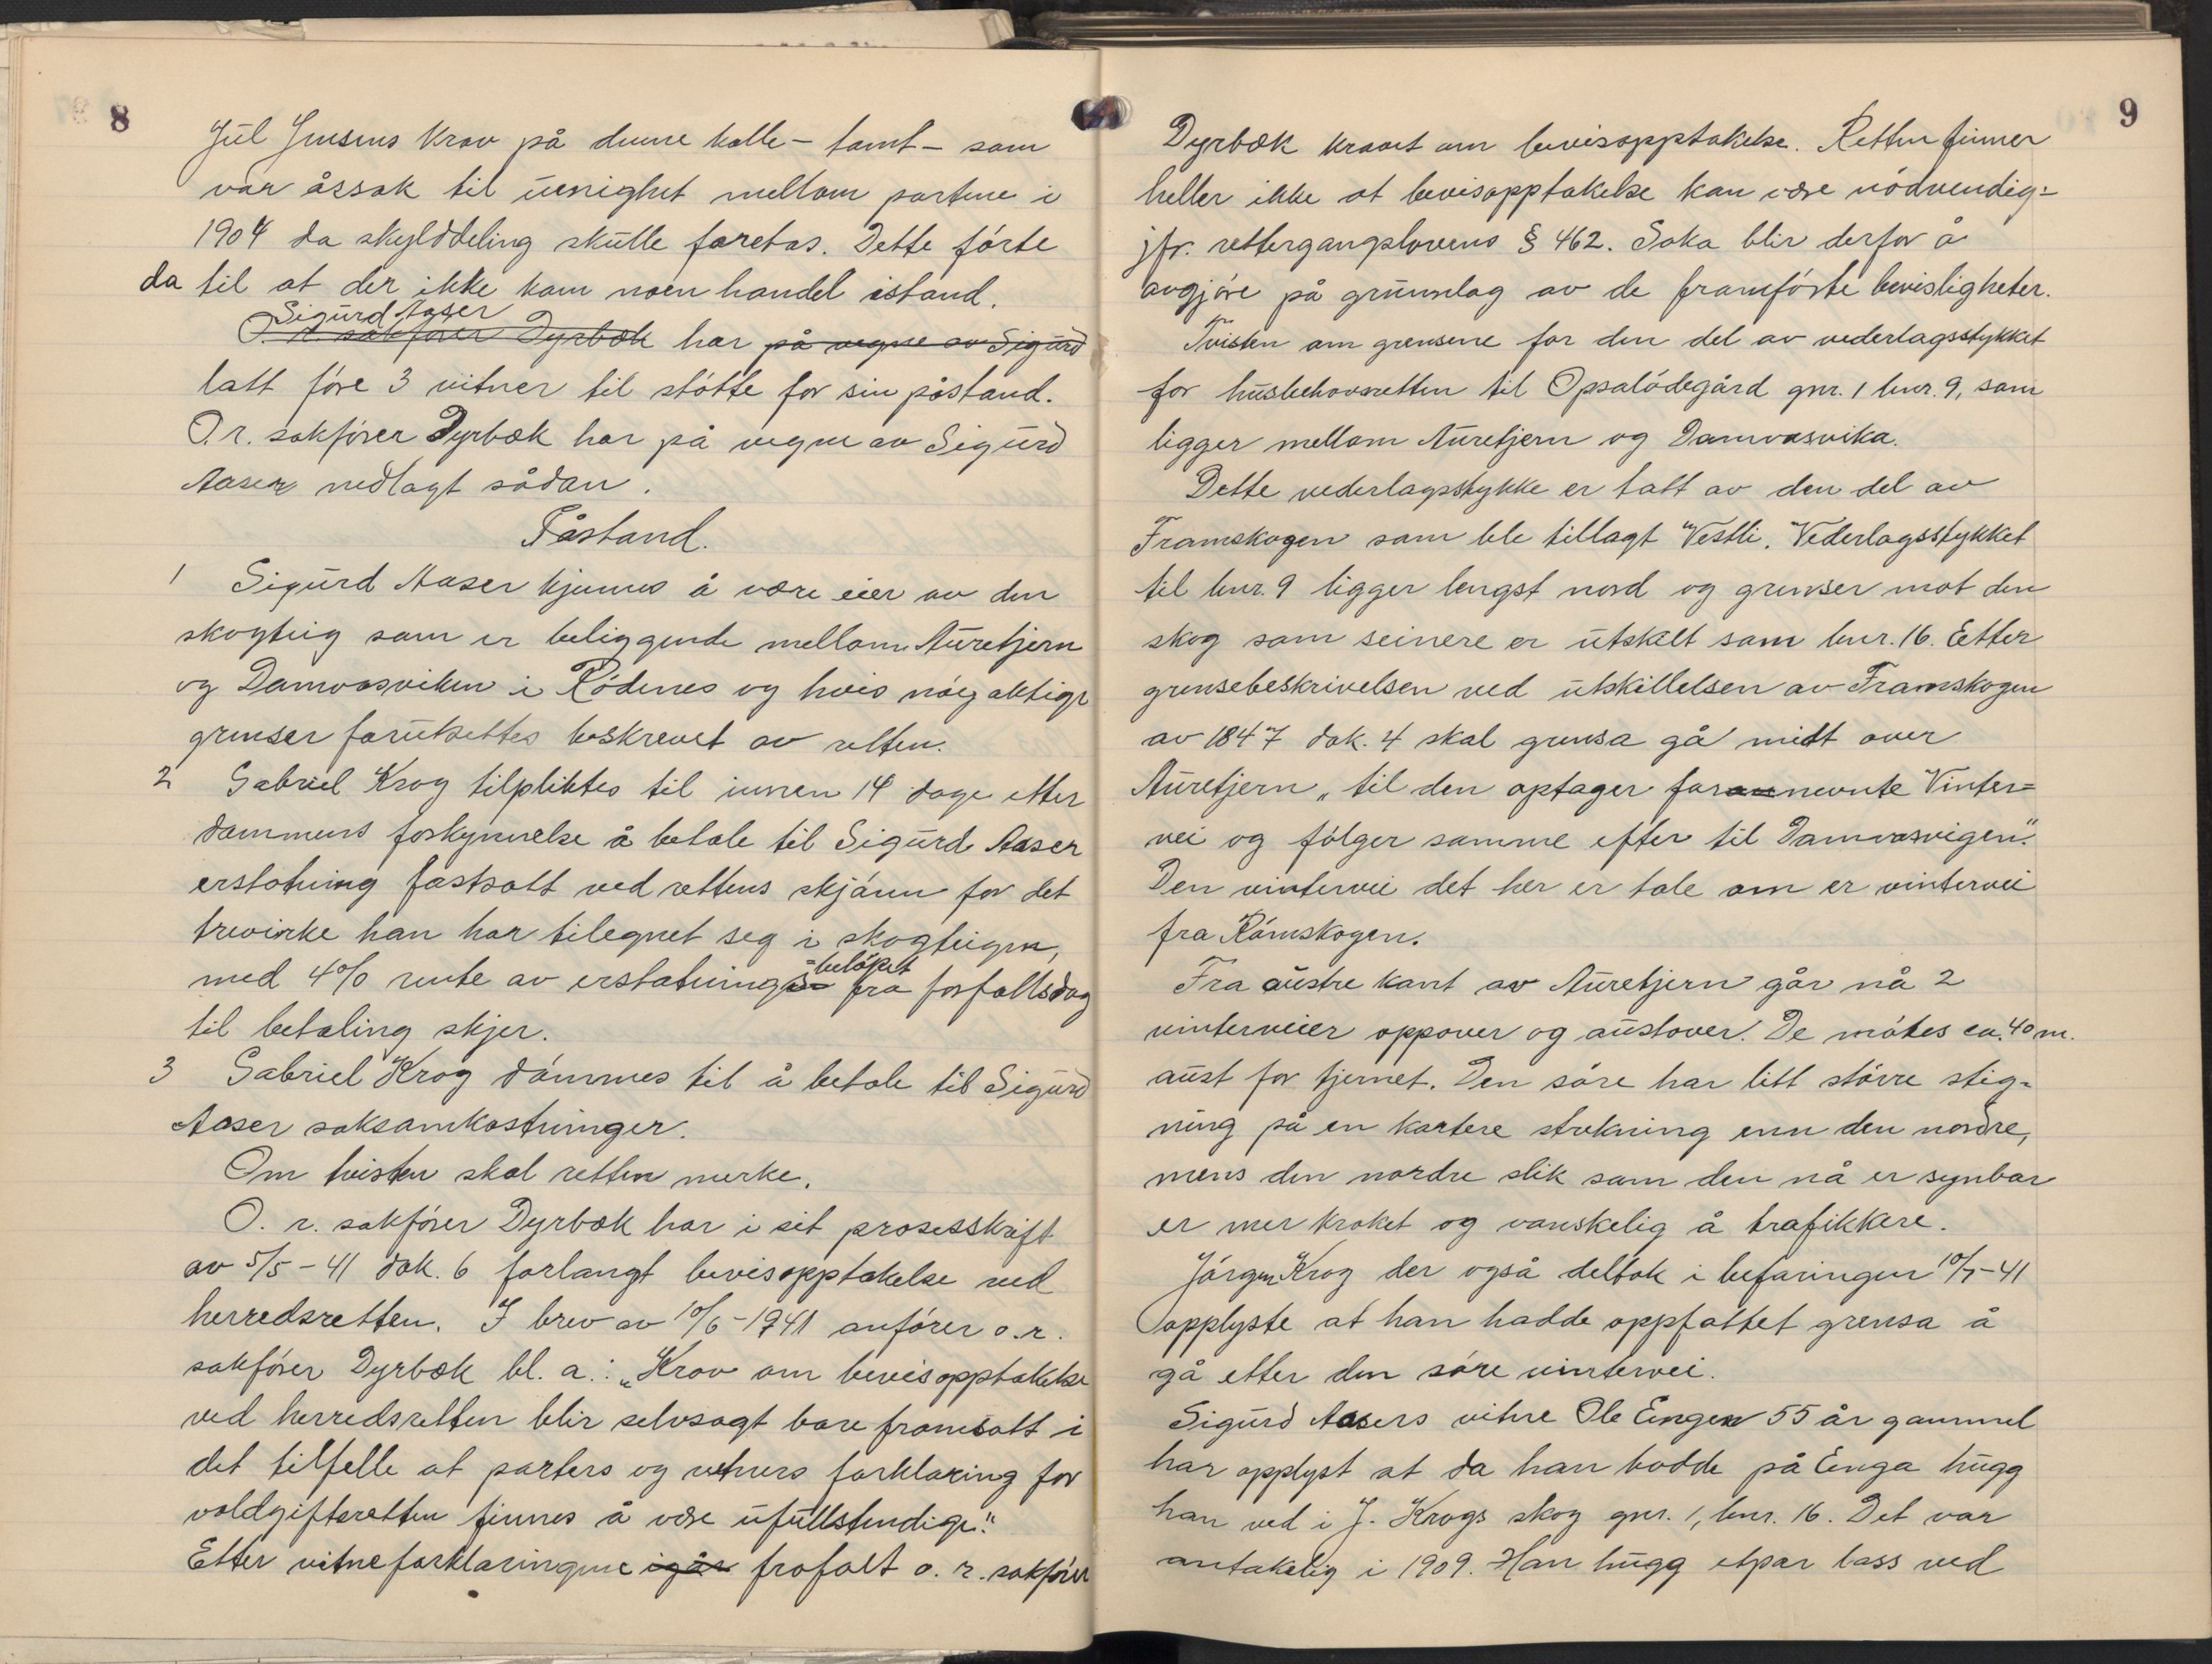 8
Jul Jensens krav på denne kolle - tomt - som
var årsak til uenighet mellom partene i
1904 da skylddeling skulle foretas. Dette førte
da til at der ikke kom noen handel istand.
Sigurd Aaser
O. r. sakfører Dyrbæk har på vegne av Sigurd
latt føre 3 vitner til støtte for sin påstand.
O. r. sakfører Dyrbæk har på vegne av Sigurd
Aaser nedlagt sådan.
Påstand.
1 Sigurd Aaser kjennes å være eier av den
skogteig som er beliggende mellom Auretjern
og Damvasviken i Rødenes og hvis nøyaktige
grenser forutsettes beskrevet av retten.
2 Gabriel Krog tilpliktes til innen 14 dage etter
dommens forkynnelse å betale til Sigurd Aaser
erstatning fastsatt ved rettens skjønn for det
trevirke han har tilegnet seg i skogteigen,
med 4% rente av erstatnings-beløpet fra forfallsdag
til betaling skjer.
3 Gabriel Krog dømmes til å betale til Sigurd
Aaser saksomkostninger.
Om tvisten skal retten merke.
O. r. sakfører Dyrbæk har i sit prosesskrift
av 5/5-41 dok. 6 forlangt bevisopptakelse ved
herredsretten. I brev av 10/6-1941 anfører o.r.
sakfører Dyrbæk bl. a.: „Krav om bevisopptakelse
ved herredsretten blir selvsagt bare framsatt i
det tilfelle at parters og vitners forklaring for
voldgiftsretten finnes å være ufullstendige."
Etter vitneforklaringene igår frafalt o. r. sakfører
9
Dyrbæk kravet om bevisopptakelse. Retten finner
heller ikke at bevisopptakelse kan være nødvendig=
jfr. rettergangslovens § 462. Saka blir derfor å
avgjøre på grunnlag av de framførte bevisligheter.
Tvisten om grensene for den del av vederlagsstykket
for husbehovsretten til Opsalødegård gnr. 1 bnr. 9, som
ligger mellom Auretjern og Damvasvika.
Dette vederlagsstykke er tatt av den del av
Framskogen som ble tillagt Vestli. Vederlagsstykket
til bnr. 9 ligger lengst nord og grenser mot den
skog som seinere er utskilt som bnr. 16. Etter
grensebeskrivelsen ved utskillelsen av Framskogen
av 1847 dok. 4 skal grensa gå midt over
Auretjern „til den optager forannevnte Vinter=
vei og følger samme efter til Damvasvigen."
Den vintervei det her er tale om er vintervei
fra Rømskogen.
Fra austre kant av Auretjern går nå 2
vinterveier oppover og austover. De møtes ca. 40 m.
aust for tjernet. Den søre har litt større stig=
ning på en kortere strekning enn den nordre,
mens den nordre slik som den nå er synbar
er mer kroket og vanskelig å trafikkere.
Jørgen Krog der også deltok i befaringen 10/7-41
opplyste at han hadde oppfattet grensa å
gå etter den søre vintervei.
Sigurd Aasers vitne Ole Engen 55 år gammel
har opplyst at da han bodde på Enga hugg
han ved i J. Krogs skog gnr. 1, bnr. 16. Det var
antakelig i 1909. Han hugg etpar lass ved